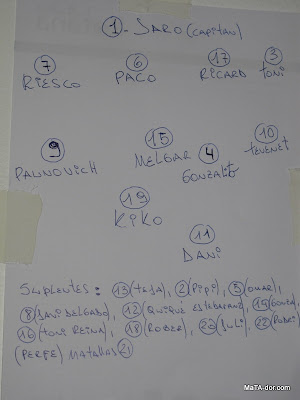 1 - JARO (CAPITAN)
7 6 17 3
RIESCO PACO RICARD TOÑI
15 10
9 MELGAR 4 TEVENET
PAUNOVICH GONZALO
19
KIKO
11
DANI
SUPLENTES: 13 (TEJA), 2 (PIPI), 5 (OMAR),
8 (DANI DELGADO), 12 (QUIQUE ESTEBARANZ),
16 (TONI REINA), 18 (ROBER), 20 (JULI), 22 (RUBEN)
(PERFE) MATALLAS 21
MaTA-dor.com